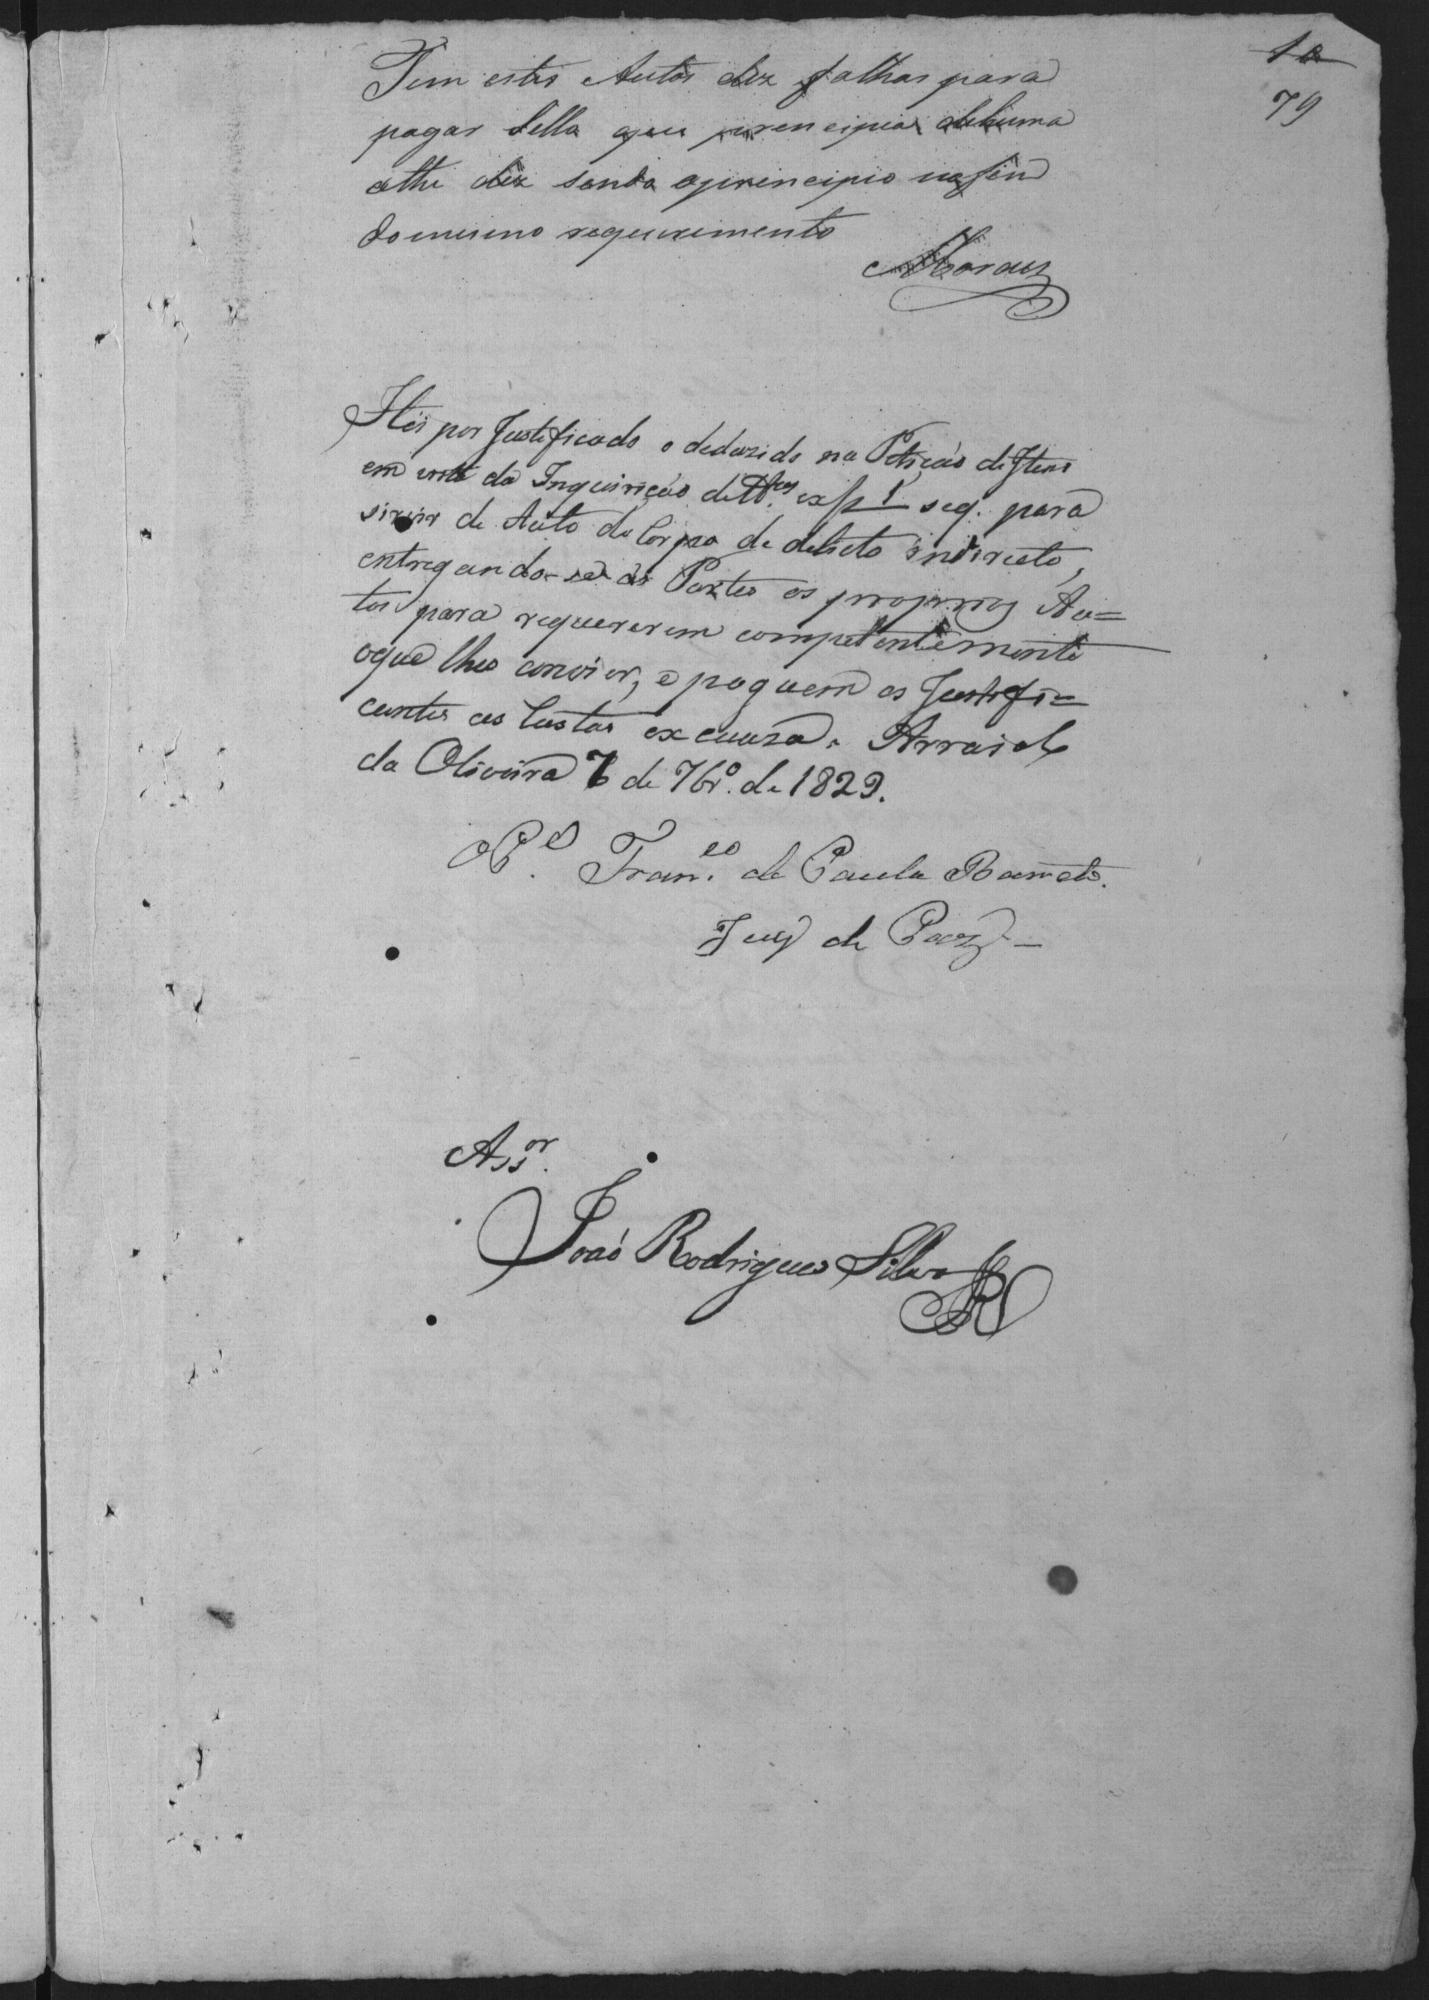 10
79
Tem estes Autos dez folhas para
pagar Sello que prencipia dehuma
athe dez sendo oprencipio nofim
domesmo requerimento
Moraes
Hei por Justificado o deduzido na Petição de Itens
em vista da Inquirição de Tt.as ex f 1 seg. para
servir de Auto de Corpo de delicto indirecto,
entregando-se ás Partes os proprios Au=
tos para requererem competentemente
oque lhes convier, e paguem os Justifi=
cantes as Custas ex cauza. Arraial
da Oliveira 7 de 7br.o de 1829.
OP.e Fran.co de Paula Barreto.
Juiz de Paz
Ass.or
João Rodrigues Silva